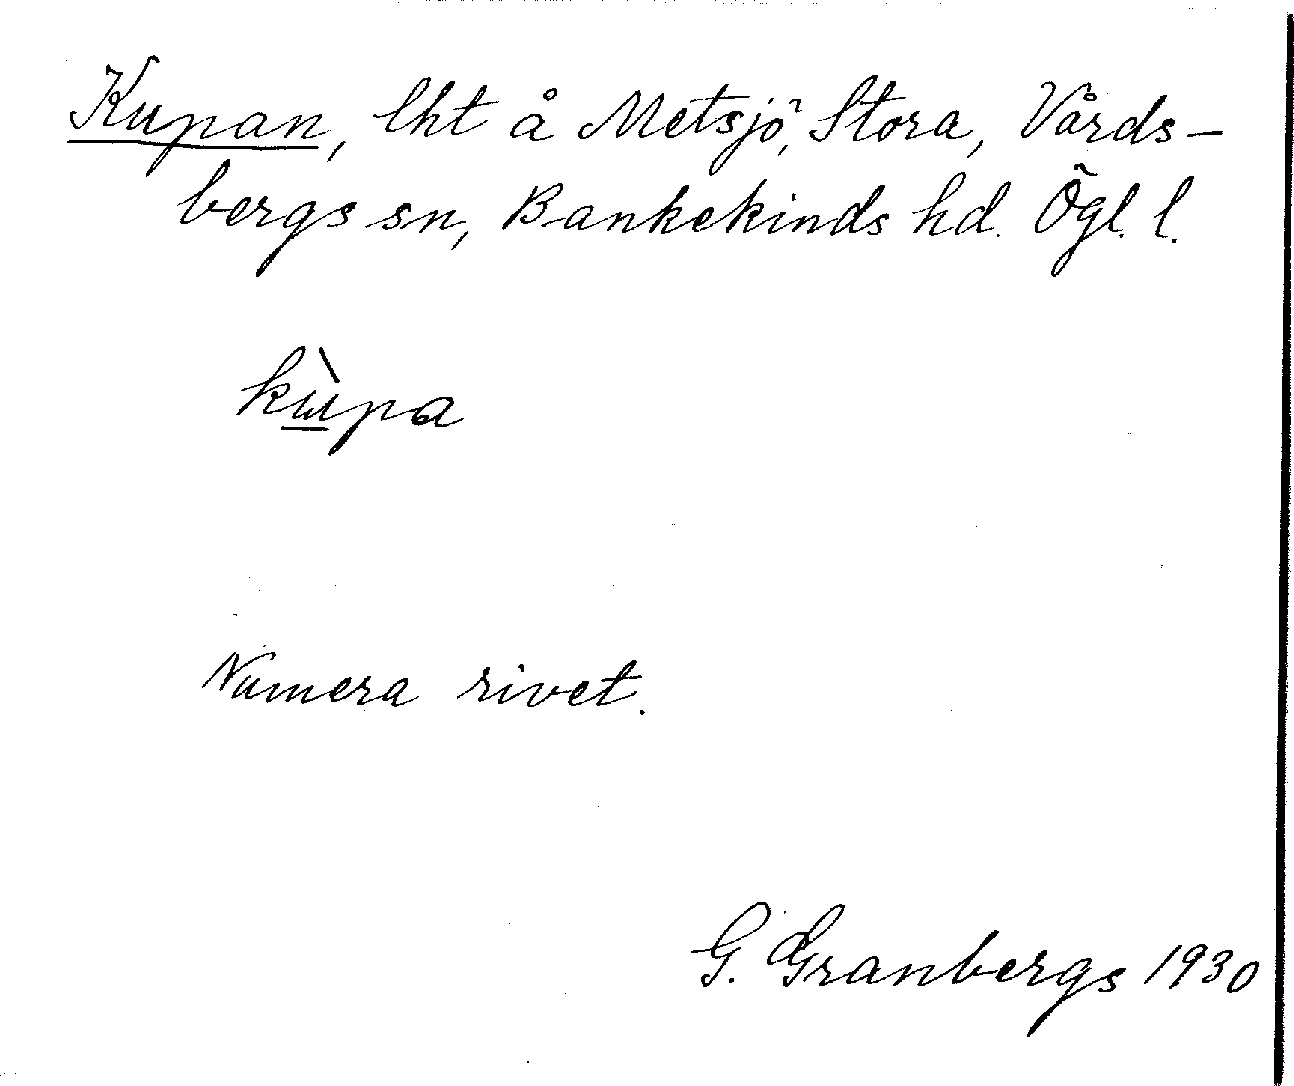 Kupan, lht å Metsjö, Stora, Vårds-
bergs sn, Bankekinds hd. Ögl. l.
kùpa
Numera rivet.
G. Granbergs 1930